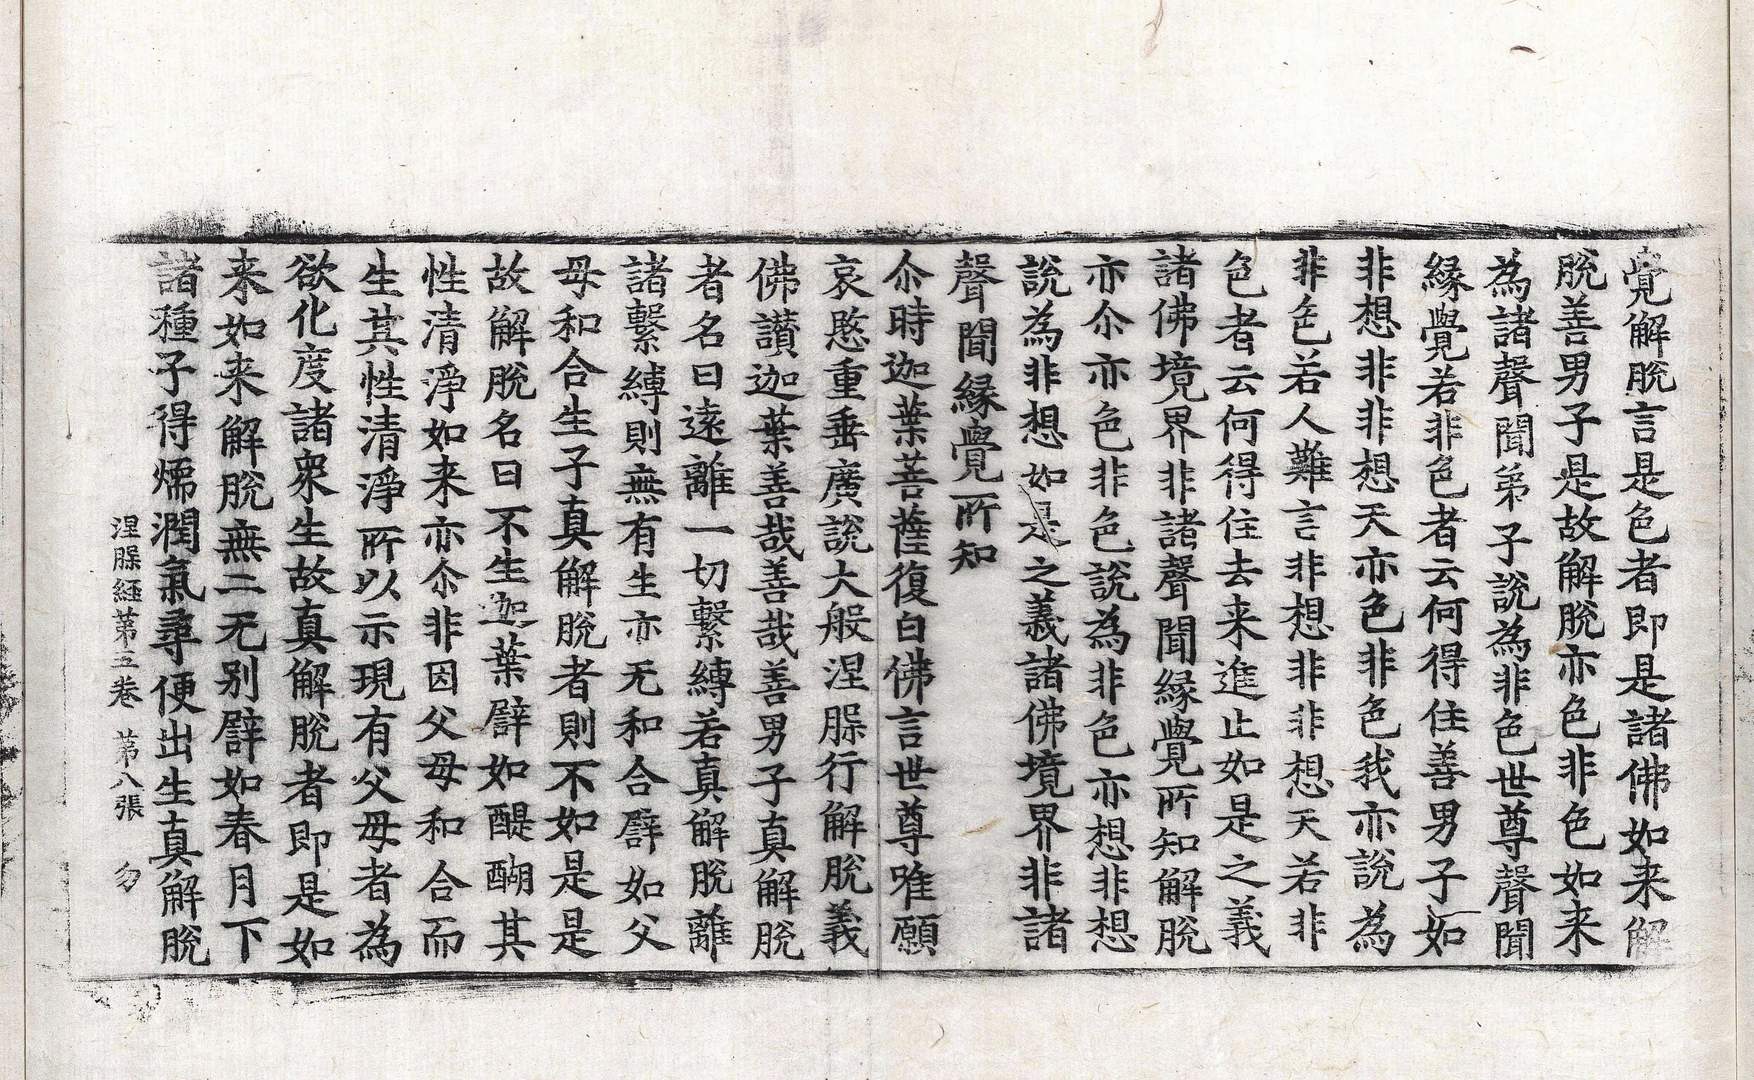 覺解脫言是色者即是諸佛如来解
脫善男子是故解脫亦色非色如来
為諸聲聞弟子說為非色世尊聲聞
緣覺若非色者云何得住善男子如
非想非非想天亦色非色我亦說為
非色若人難言非想非非想天若非
色者云何得住去来進止如是之義
諸佛境界非諸聲聞緣覺所知解脫
亦尒亦色非色說為非色亦想非想
說為非想如是之義諸佛境界非諸
聲聞緣覺所知
尒時迦葉菩薩復白佛言世尊唯願
哀愍重垂廣說大般涅槃行解脫義
佛讚迦葉善哉善哉善男子真解脫
者名曰遠離一切繫縛若真解脫離
諸繫縛則無有生亦无和合譬如父
母和合生子真解脫者則不如是是
故解脫名曰不生迦葉譬如醍醐其
性清淨如来亦尒非因父母和合而
生其性清淨所以示現有父母者為
欲化度諸衆生故真解脫者即是如
来如来解脫無二无别譬如春月下
諸種子得煗潤氣尋便出生真解脫
涅槃經第五卷 第八張 勿